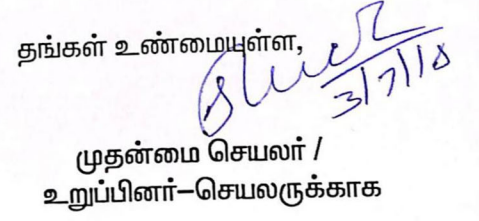 தங்கள் உண்மையுள்ள,
3/7/18
முதன்மை செயலர் /
உறுப்பினர்–செயலருக்காக